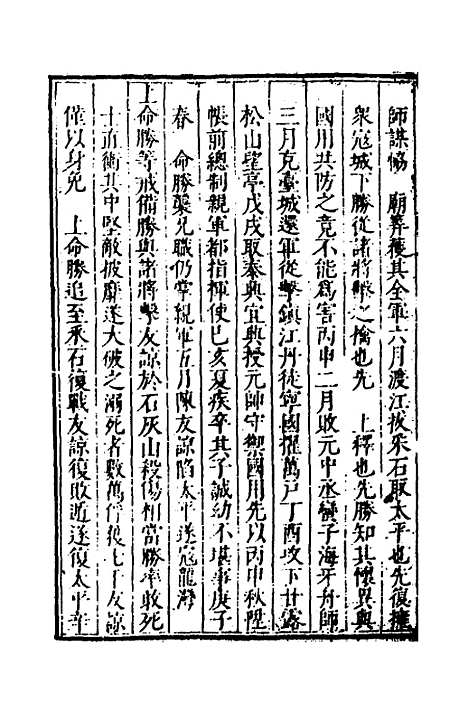 師謀恊　廟筭獲其全軍六月渡江拔采石取太平也先復擁
衆寇城下勝從諸將擊之擒也先　上釋也先勝知其懷異與
國用共防之竟不能爲害丙申二月敗元中丞蠻子海牙舟師
三月克臺城還軍從擊鎮江丹徒寧國擢萬戶丁酉攻下甘露
松山望亭戊戌取泰興宜興授元帥守禦國用先以丙申秋陞
帳前總制親軍都指揮使巳亥夏疾卒其子誠幼不堪事庚子
春　命勝襲兄職仍掌親軍五月陳友諒陷太平遂寇龍灣
上命勝等戒備勝與諸將擊友諒於石灰山殺傷相當勝率敢死
士直衝其中堅敵披靡遂大破之溺死者數萬俘獲七千友諒
僅以身免　上命勝追至采石復戰友諒復敗遁遂復太平辛